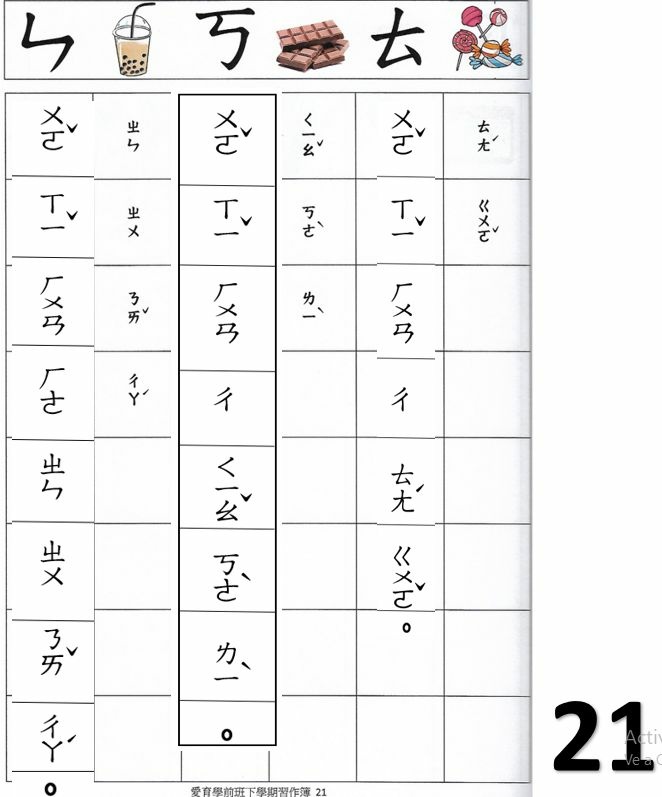 ㄣ ㄎ ㄊ
ㄨㄛˇ ㄒㄧˇ ㄏㄨㄢ ㄏㄜ ㄓㄣ ㄓㄨ ㄋㄞˇ ㄔㄚˊ 。
ㄓㄣ ㄓㄨ ㄋㄞˇ ㄔㄚˊ
ㄨㄛˇ ㄒㄧˇ ㄏㄨㄢ ㄔ ㄑㄧㄠˇ ㄎㄜˋ ㄌㄧˋ 。
ㄑㄧㄠˇ ㄎㄜˋ ㄌㄧˋ
ㄨㄛˇ ㄒㄧˇ ㄏㄨㄢ ㄔ ㄊㄤˊ ㄍㄨㄛˇ 。
ㄊㄤˊ ㄍㄨㄛˇ
愛育學前班下學期習作簿 21
21